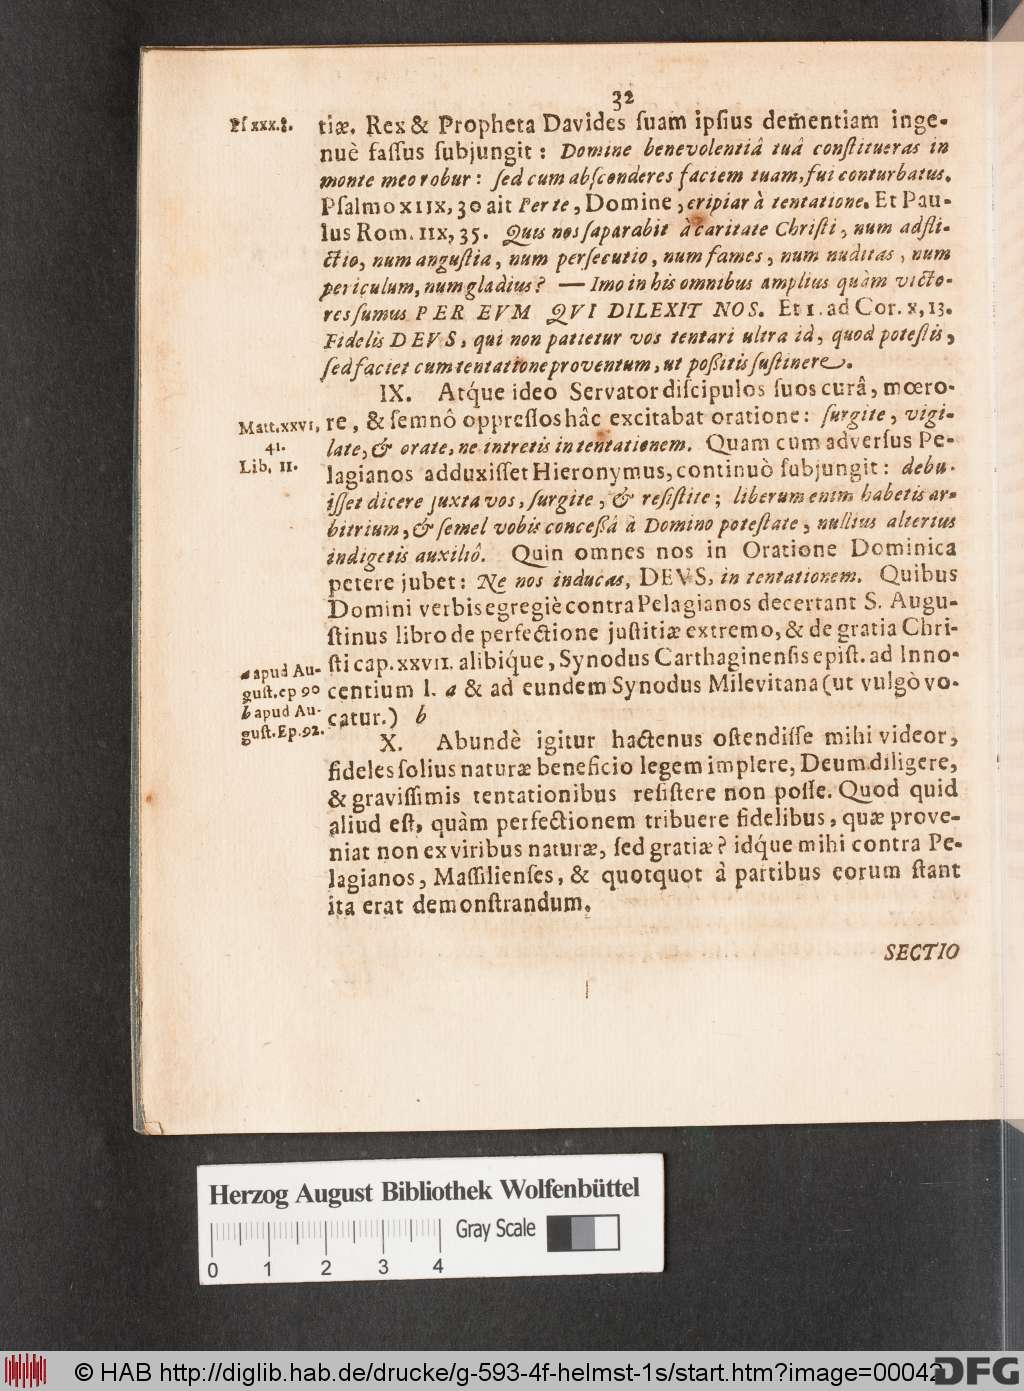 32
Pſ xxx.8. tiæ. Rex & Propheta Davides ſuam ipſius dementiam inge-
nuè faſſus ſubjungit: Domine benevolentiâ tuâ conſtitueras in
monte meo robur: ſed cum abſconderes faciem tuam, fui conturbatus.
Pſalmo XIIX, 30 ait Per te, Domine, eripiar à tentatione. Et Pau-
lus Rom. IIX, 35. Quis nos ſaparabit à caritate Chriſti, num adfli-
ctio, num anguſtia, num perſecutio, num fames, num nuditas, num
periculum, num gladius? — Imo in his omnibus amplius quàm victo-
res ſumus PER EVM QVI DILEXIT NOS. Et 1. ad Cor. X, 13.
Fidelis DEVS, qui non patietur vos tentari ultra id, quod poteſtis,
ſed faciet cum tentatione proventum, ut poßitis ſuſtinere.
IX. Atq́ue ideo Servator diſcipulos ſuos curâ, mœro-
Matt.XXVI, 41. re, & ſemnô oppreſſos hâc excitabat oratione: ſurgite, vigi-
late, & orate, ne intretis in tentationem. Quam cum adverſus Pe-
Lib. II. lagianos adduxiſſet Hieronymus, continuò ſubjungit: debu-
iſſet dicere juxta vos, ſurgite, & reſiſtite; liberum enim habetis ar-
bitrium, & ſemel vobis conceßâ à Domino poteſtate, nullius alterius
indigetis auxiliô. Quin omnes nos in Oratione Dominica
petere jubet: Ne nos inducas, DEVS, in tentationem. Quibus
Domini verbis egregiè contra Pelagianos decertant S. Augu-
ſtinus libro de perfectione juſtitiæ extremo, & de gratia Chri-
a apud Au- ſti cap. XXVII. alibiq́ue, Synodus Carthaginenſis epiſt. ad Inno-
guſt. ep 90 centium I. a & ad eundem Synodus Milevitana (ut vulgò vo-
b apud Au- catur.) b
guſt. Ep. 92.
X. Abundè igitur hactenus oſtendiſſe mihi videor,
fideles ſolius naturæ beneficio legem implere, Deum diligere,
& graviſſimis tentationibus reſiſtere non poſſe. Quod quid
aliud eſt, quàm perfectionem tribuere fidelibus, quæ prove-
niat non ex viribus naturæ, ſed gratiæ? idq́ue mihi contra Pe-
lagianos, Maſſilienſes, & quotquot à partibus eorum ſtant
ita erat demonſtrandum.
SECTIO
Herzog August Bibliothek Wolfenbüttel
Gray Scale
0 1 2 3 4
© HAB http://diglib.hab.de/drucke/g-593-4f-helmst-1s/start.htm?image=00042
DFG